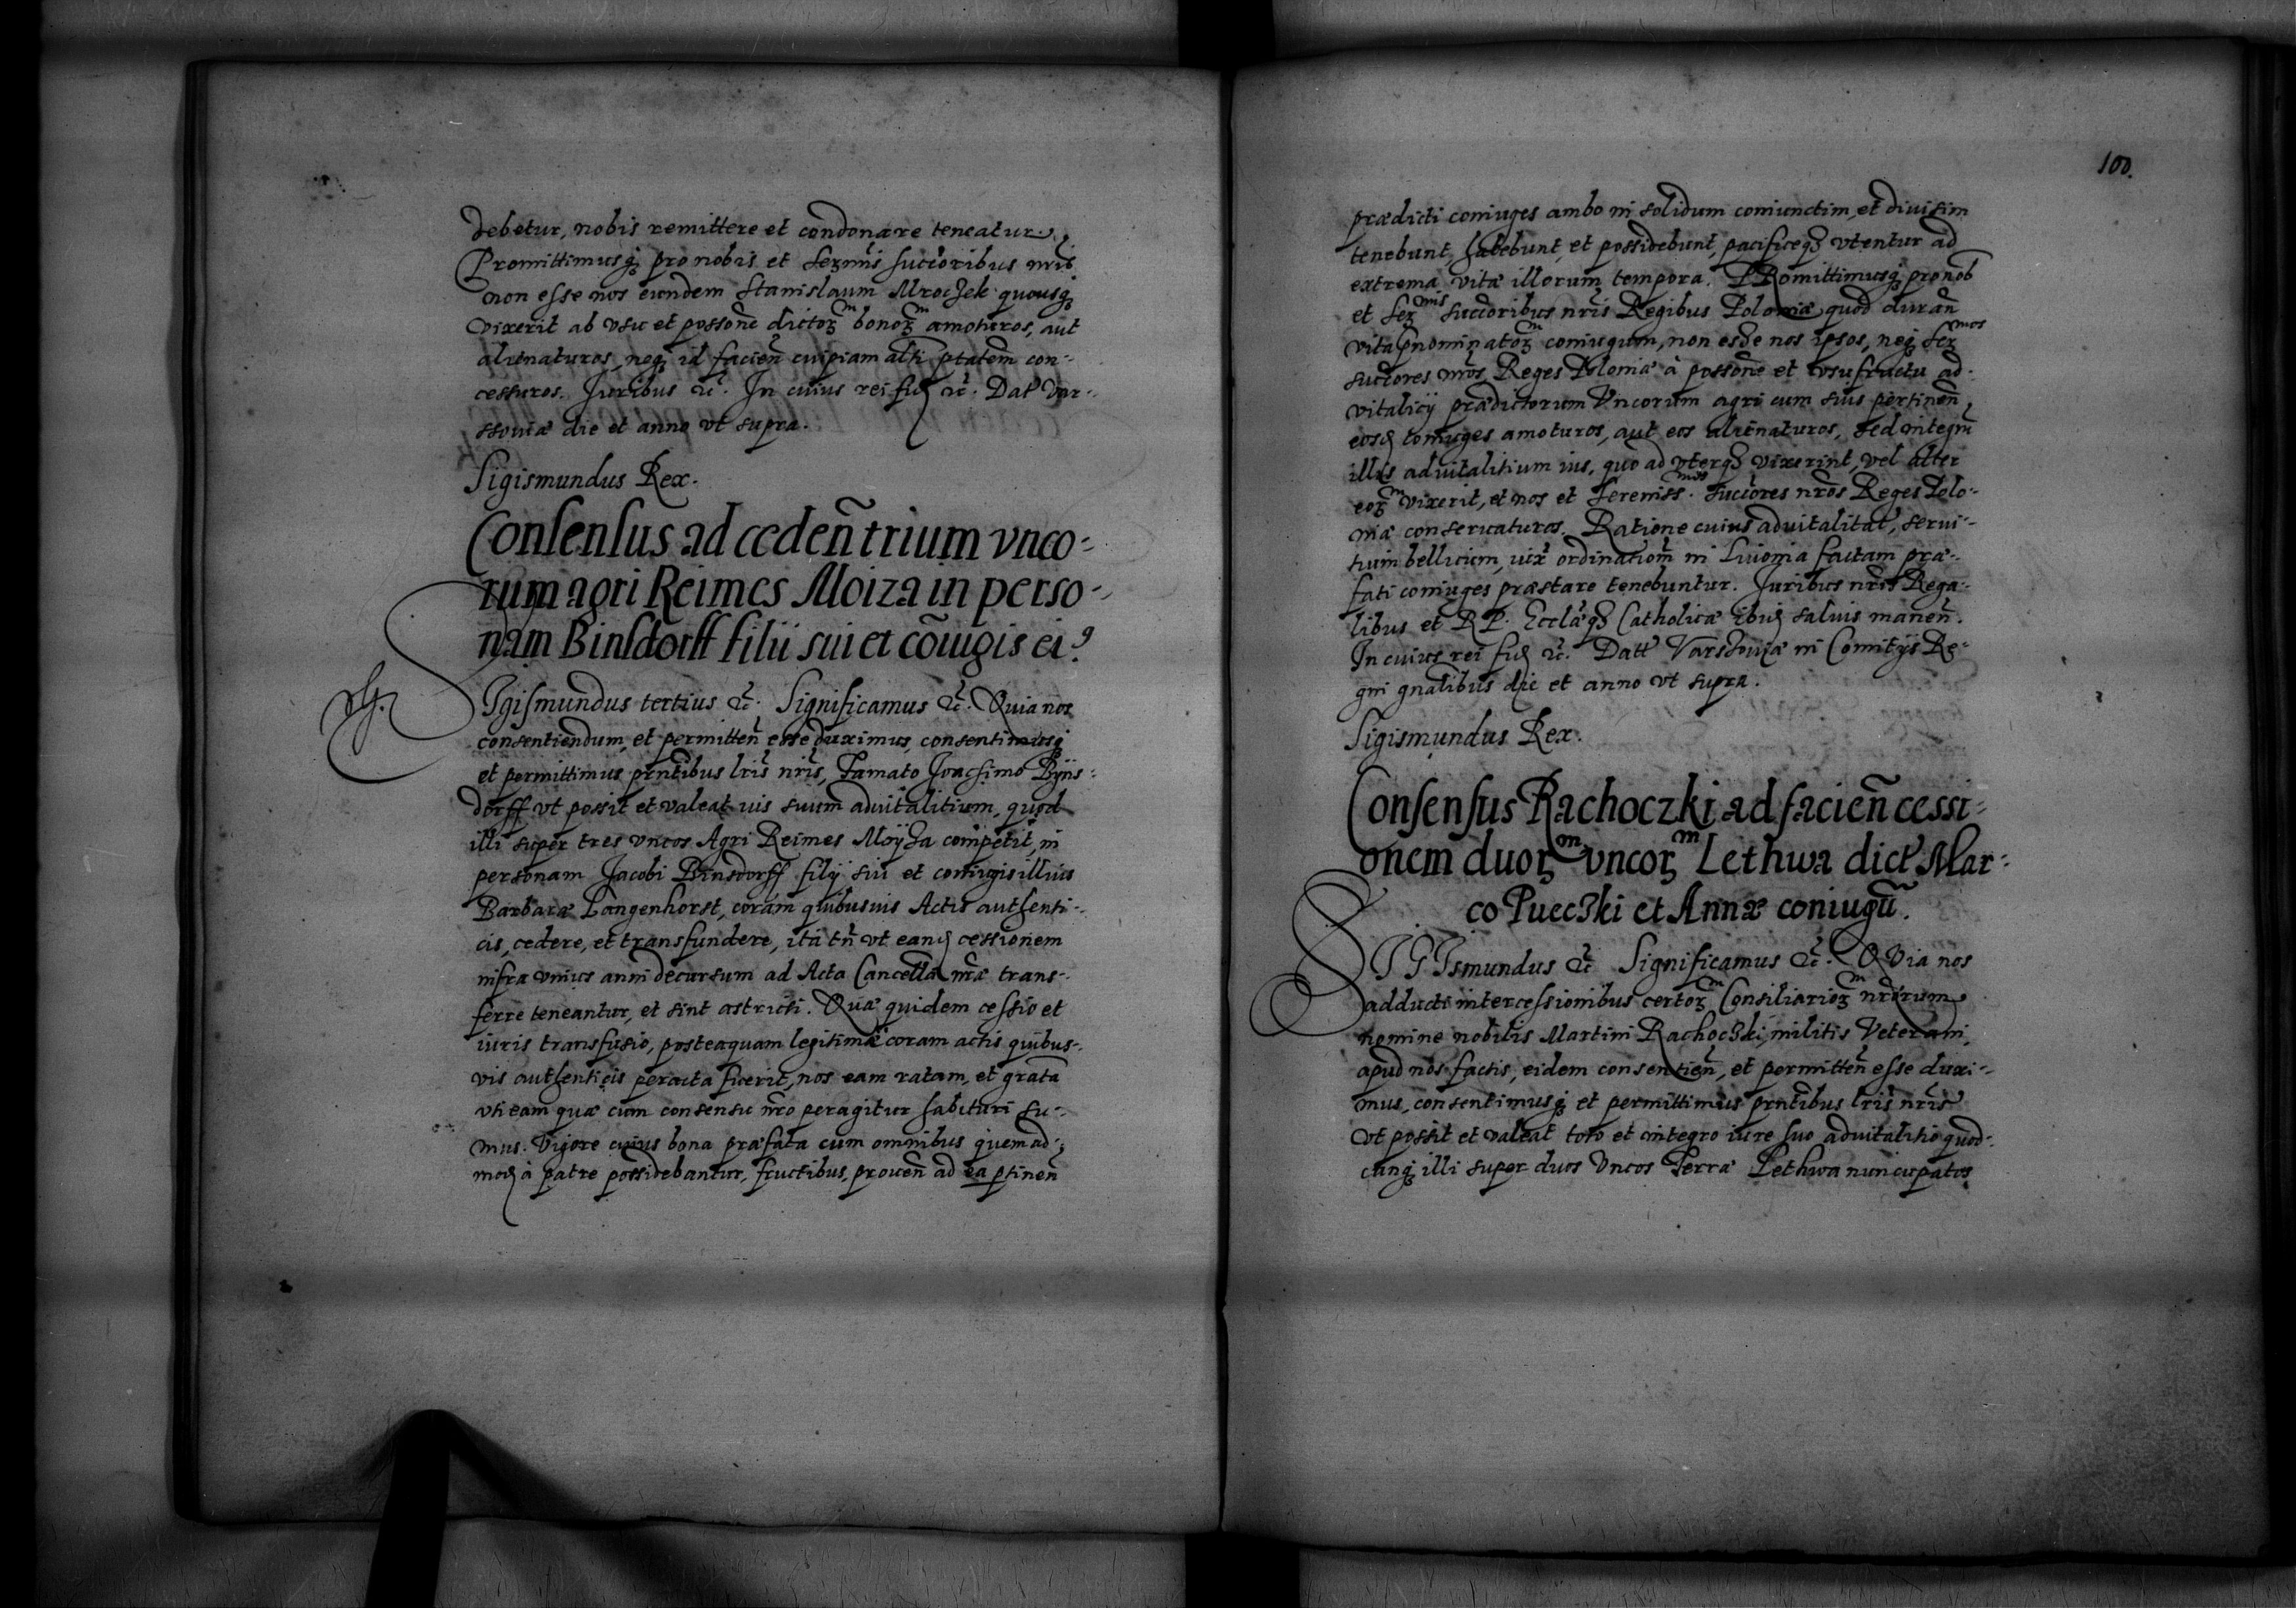 debetur, nobis remittere et condonare teneatur.
Promittimusq́ꝫ pro nobis et Serm̃is succ̃oribus nr̃is
non esse nos eundem Stanislaum Mroczek quousq́ꝫ
vixerit ab vsu et possõne dictoꝝm bonoꝝm amoturos, aut
alienaturos, neq́ꝫ id facien̄ cuipiam alti p̱tatem con-
cessuros. Juribus ⁊c̃. In cuius rei fiꝺ ⁊c̃. Dat̃ Var-
ssouiæ die et anno vt supra.
Sigismundus Rex.
Consensus ad ceden̄ trium vnco-
rum agri Reimes Moiza in perso-
nam Binsdorff filii sui et cõiugis eiꝰ.
SIgismundus tertius ⁊c̃. Significamus ⁊c̃. Quia nos
consentiendum, et permitten̄ esse duximus, consentimusq́ꝫ
et permittimus prñtibus lr̃is nr̃is, Famato Joachimo Byns-
dorff vt possit et valeat ius suum aduitalitium, quod
illi super tres vncos Agri Reimes Moyza competit, in
personam Jacobi Binsdorff filij sui et coniugis illius
Barbaræ Langenhorst, coram quibusuis Actis authenti-
cis, cedere, et transfundere, ita tñ vt eanꝺ cessionem
infra vnius anni decursum ad Acta Cancellã nr̃æ trans-
ferre teneantur, et sint astricti. Quæ quidem cessio et
iuris transfusio, posteaquam legitimè coram actis quibus-
vis authenticis peracta fuerit, nos eam ratam, et gratã
vti eam quæ cum consensu nr̃o peragitur habituri su-
mus. Vigore cuius bona præfata cum omnibus quemad-
moꝺ à patre possidebantur, fructibus, prouen̄ ad ea p̱tinen̄
100.
prædicti coniuges ambo in solidum coniunctim et diuisim
tenebunt, habebunt, et possidebunt, pacificeq́ꝫ vtentur ad
extrema vitæ illorum tempora. PRomittimusq́ꝫ pro nob
et Serᵐⁱˢ succ̃oribus nr̃is Regibus Poloniæ quod duran̄
vita p̄nominatoꝝm coniugum, non esse nos ipsos, neq́ꝫ Serᵐᵒˢ
succ̃ores nr̃os Reges Poloniæ à possõne et vsufructu ad-
vitalicij prædictorum Vncorum agri cum suis pertinen̄
eosꝺ coniuges amoturos, aut eos alienaturos, sed integrũ
illis aduitalitium ius, quo ad vterq́ꝫ vixerint, vel alter
eoꝝm vixerit, et nos et Sereniss.ᵐᵒˢ succ̃ores nr̃os Reges Polo-
niæ conseruaturos. Ratione cuius aduitalitat̃, serui-
tium bellicum, iux̃ ordinatiom̃ in Liuonia factam præ-
fati coniuges præstare tenebuntur. Juribus nr̃is Rega-
libus et R P. Ecclæq́ꝫ Catholicæ ibiꝺ saluis manen̄.
In cuius rei fiꝺ ⁊c̃. Datt̃ Varssouiæ in Comitijs Re-
gni gnãlibus die et anno vt supra.
Sigismundus Rex.
Consensus Rachoczki ad facien̄ cessi-
onem duoꝝm vncoꝝm Lethwa dict̃ Mar-
co Pueczki et Annæ coniugũ.
SIGIsmundus ⁊c̃ Significamus ⁊c̃. QVia nos
adducti intercessionibus certoꝝm Consiliarioꝝm nr̃orum
nomine nobilis Martini Rachoczki, militis Veterani,
apud nos factis, eidem consentien̄, et permitten̄ esse duxi-
mus, consentimusq́ꝫ et permittimus prñtibus lr̃is nr̃is
vt possit et valeat toto et integro iure suo aduitalitio quod-
cunq́ꝫ illi super duos Vncos Terræ Lethwa nuncupatos